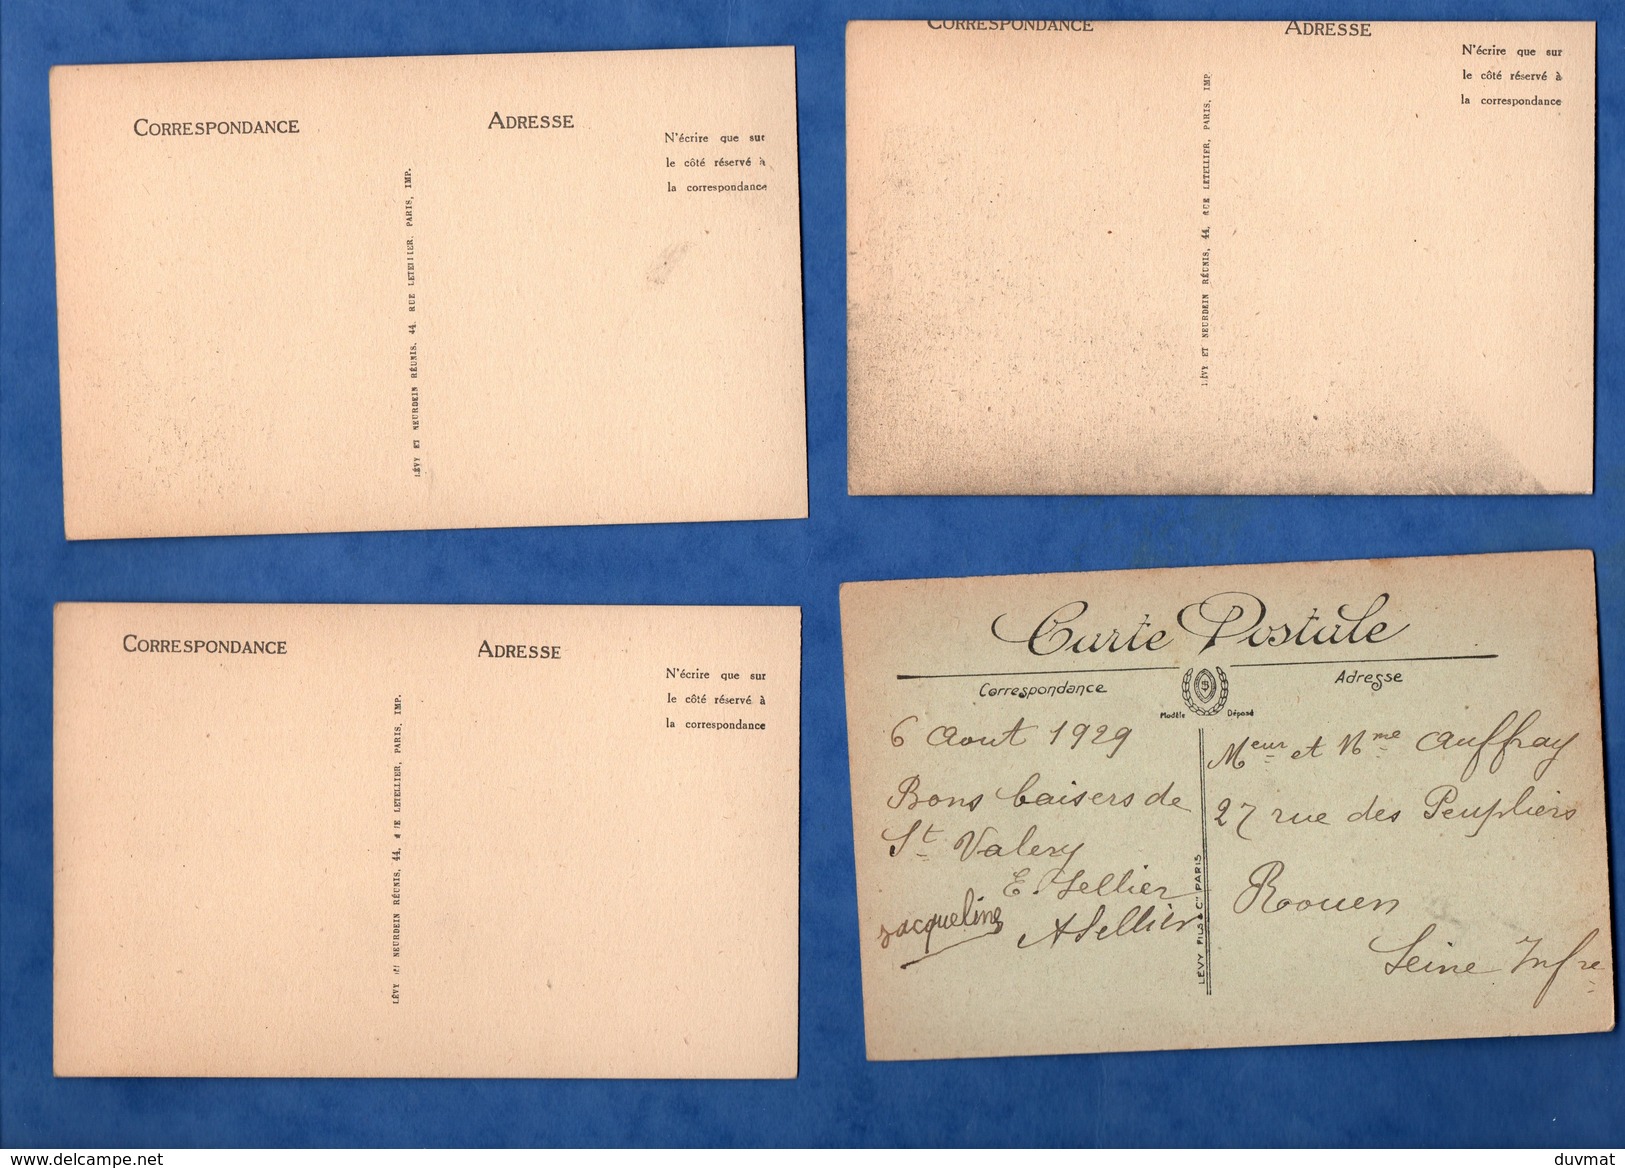 CORRESPONDANCE
ADRESSE
N'écrire que sur
le côté réservé à
la correspondance
LÉVY ET NEURDEIN RÉUNIS, 44, RUE LETELLIER, PARIS, IMP.
CORRESPONDANCE
ADRESSE
N'écrire que sur
le côté réservé à
la correspondance
LÉVY ET NEURDEIN RÉUNIS, 44, RUE LETELLIER, PARIS, IMP.
CORRESPONDANCE
ADRESSE
N'écrire que sur
le côté réservé à
la correspondance
LÉVY ET NEURDEIN RÉUNIS, 44, RUE LETELLIER, PARIS, IMP.
Carte Postale
Correspondance
Adresse
Modèle Déposé
6 Aout 1929
Bons baisers de
St Valery
E. Sellier
Jacqueline
A Sellier
LÉVY FILS & Cie PARIS
Meur et Mme Auffray
27 rue des Peupliers
Rouen
Seine Infre
delcampe.net
duvmat